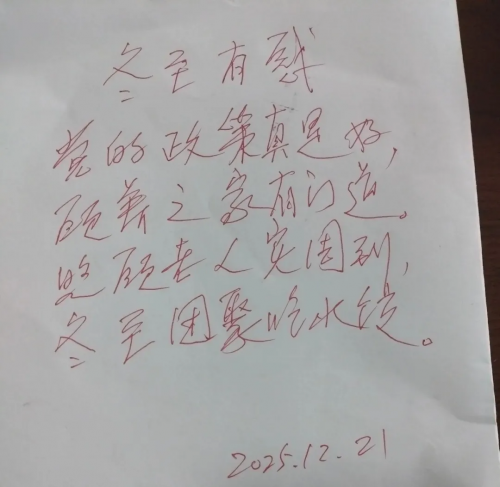 冬至有感
党的政策真是好，
颐养之家有门道。
照顾老人实周到，
冬至团聚吃水饺。
2025.12.21